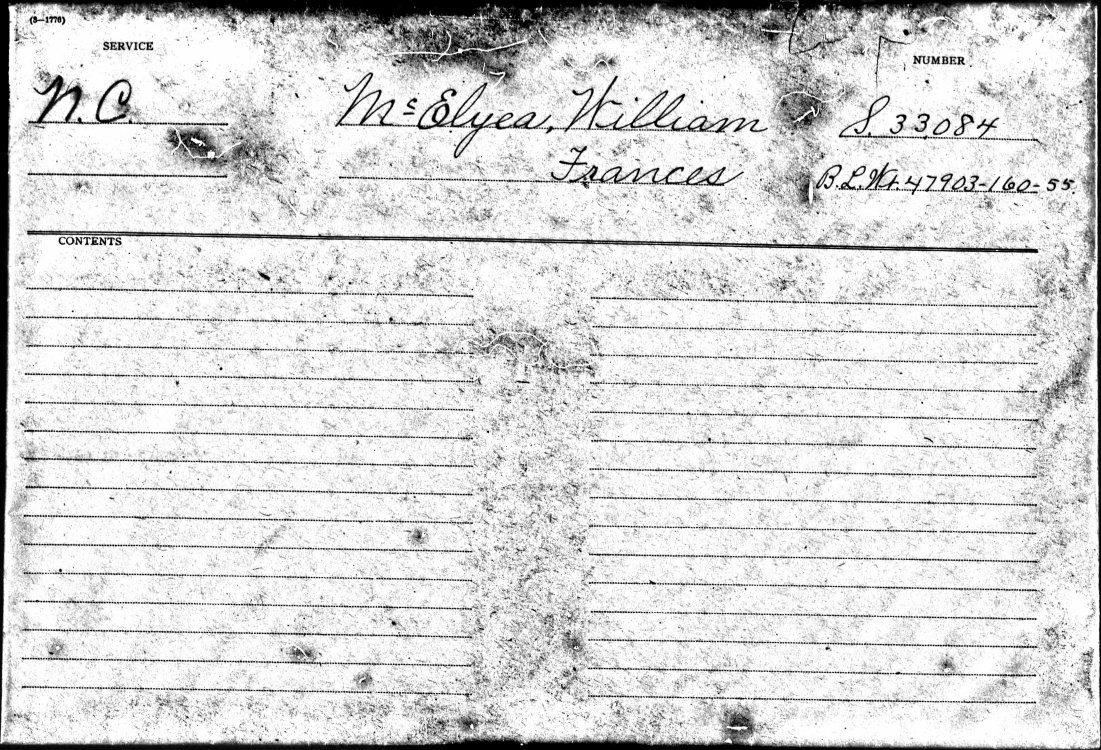 (3—1776)
SERVICE
NUMBER
N.C.
McElyea, William
S. 33084
Frances
B.L.Wt. 47903-160-55
CONTENTS